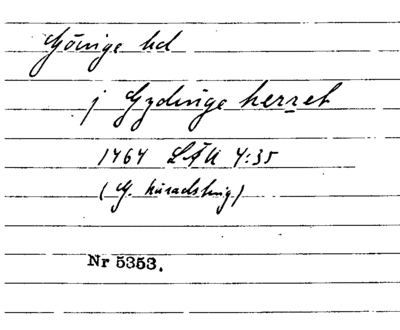 Göinge hd
j Gydinge herret
1464 LÄU 4:35
(G. häradsting)
Nr 5353.